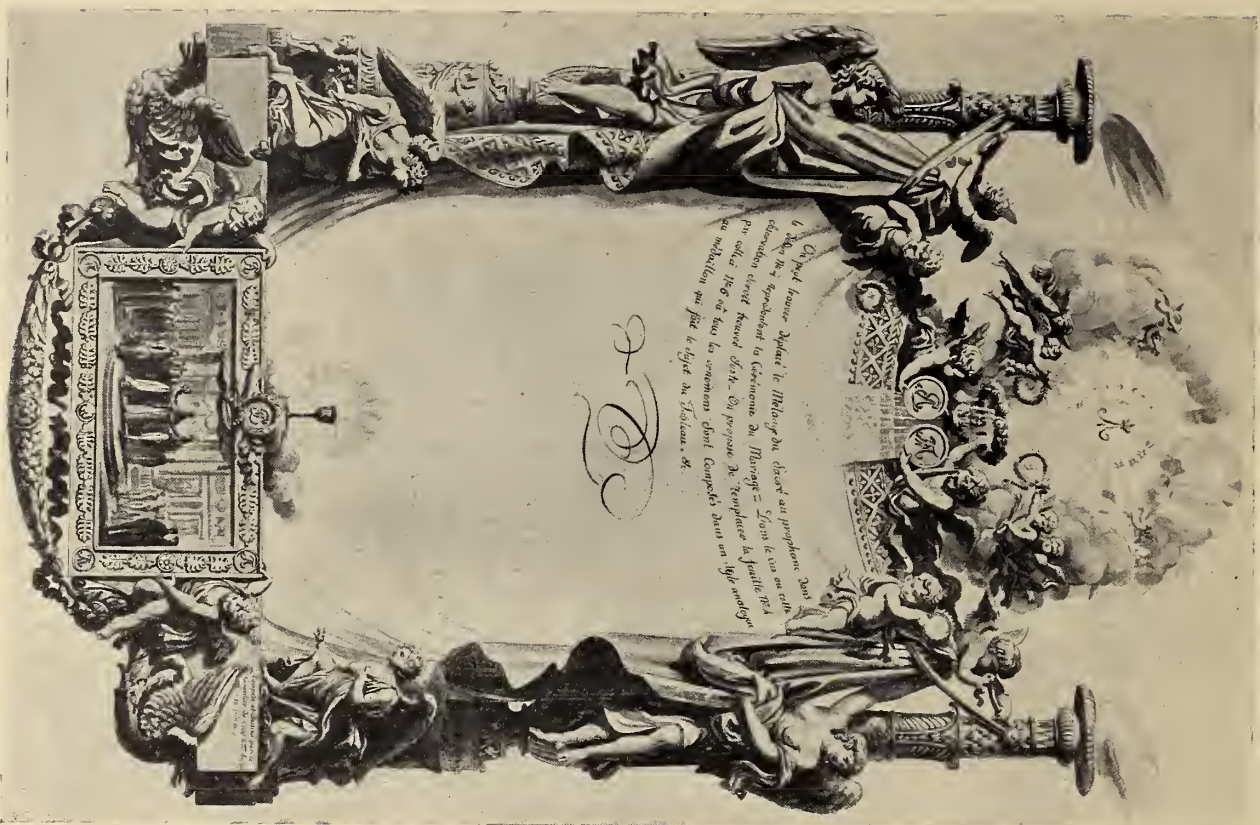 On peut trouver déplacé le Melange du Sacré au prophane dans
le representant la Cérémonie du Mariage = Dans le cas ou cette
observation seroit trouvée Juste. On propose de remplacer la feuille N.A
par celle ci N.B où tous les ornemens sont Composés dans un style analogue
au médaillon qui fait le sujet du Tableau. &.
B